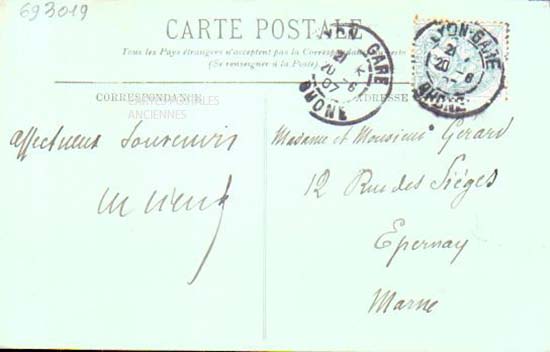 693019
CARTE POSTALE
Tous les Pays étrangers n'acceptent pas la Correspondance au recto
(Se renseigner à la Poste)
LYON-GARE
21
20 -6
07
RHONE
LYON-GARE
21
20 -6
RHONE
CORRESPONDANCE
ADRESSE
CARTES POSTALES
ANCIENNES
Affectueux Souvenirs
Madame et Monsieur Gerard
12 Rue des Siéges
Epernay
Marne